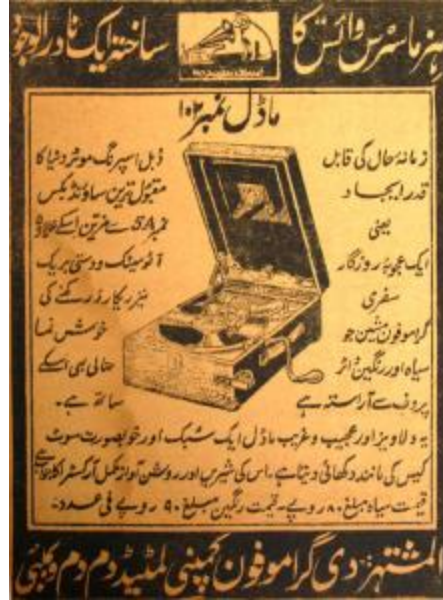 ہز ماسٹرس وائس کا ساختہ ایک نادر الوجود
ماڈل نمبر ۱۰۲
زمانۂ حال کی قابل
قدر ایجاد
یعنی
ایک عجوبۂ روزگار
سفری
گراموفون مشین جو
سیاہ اور رنگین واٹر
پروف سے آراستہ ہے
ڈبل اسپرنگ موٹر دنیا کا
مقبول ترین ساؤنڈ بکس
نمبر 5A سے مزین اسکے علاوہ
آٹومیٹک و دستی بریک
نیز ریکارڈ رکھنے کی
خوش نما
تھالی بھی اسکے
ساتھ ہے۔
یہ دلآویز اور عجیب و غریب ماڈل ایک سبک اور خوبصورت سوٹ
کیس کی مانند دکھائی دیتا ہے۔ اس کی شیریں اور روشن آواز مکمل آرکسٹرا کا
قیمت سیاہ مبلغ ۸۰ روپے۔ قیمت رنگین مبلغ ۹۰ روپے فی عدد۔
المشتہر: دی گراموفون کمپنی لمٹیڈ دم دم و بمبئی